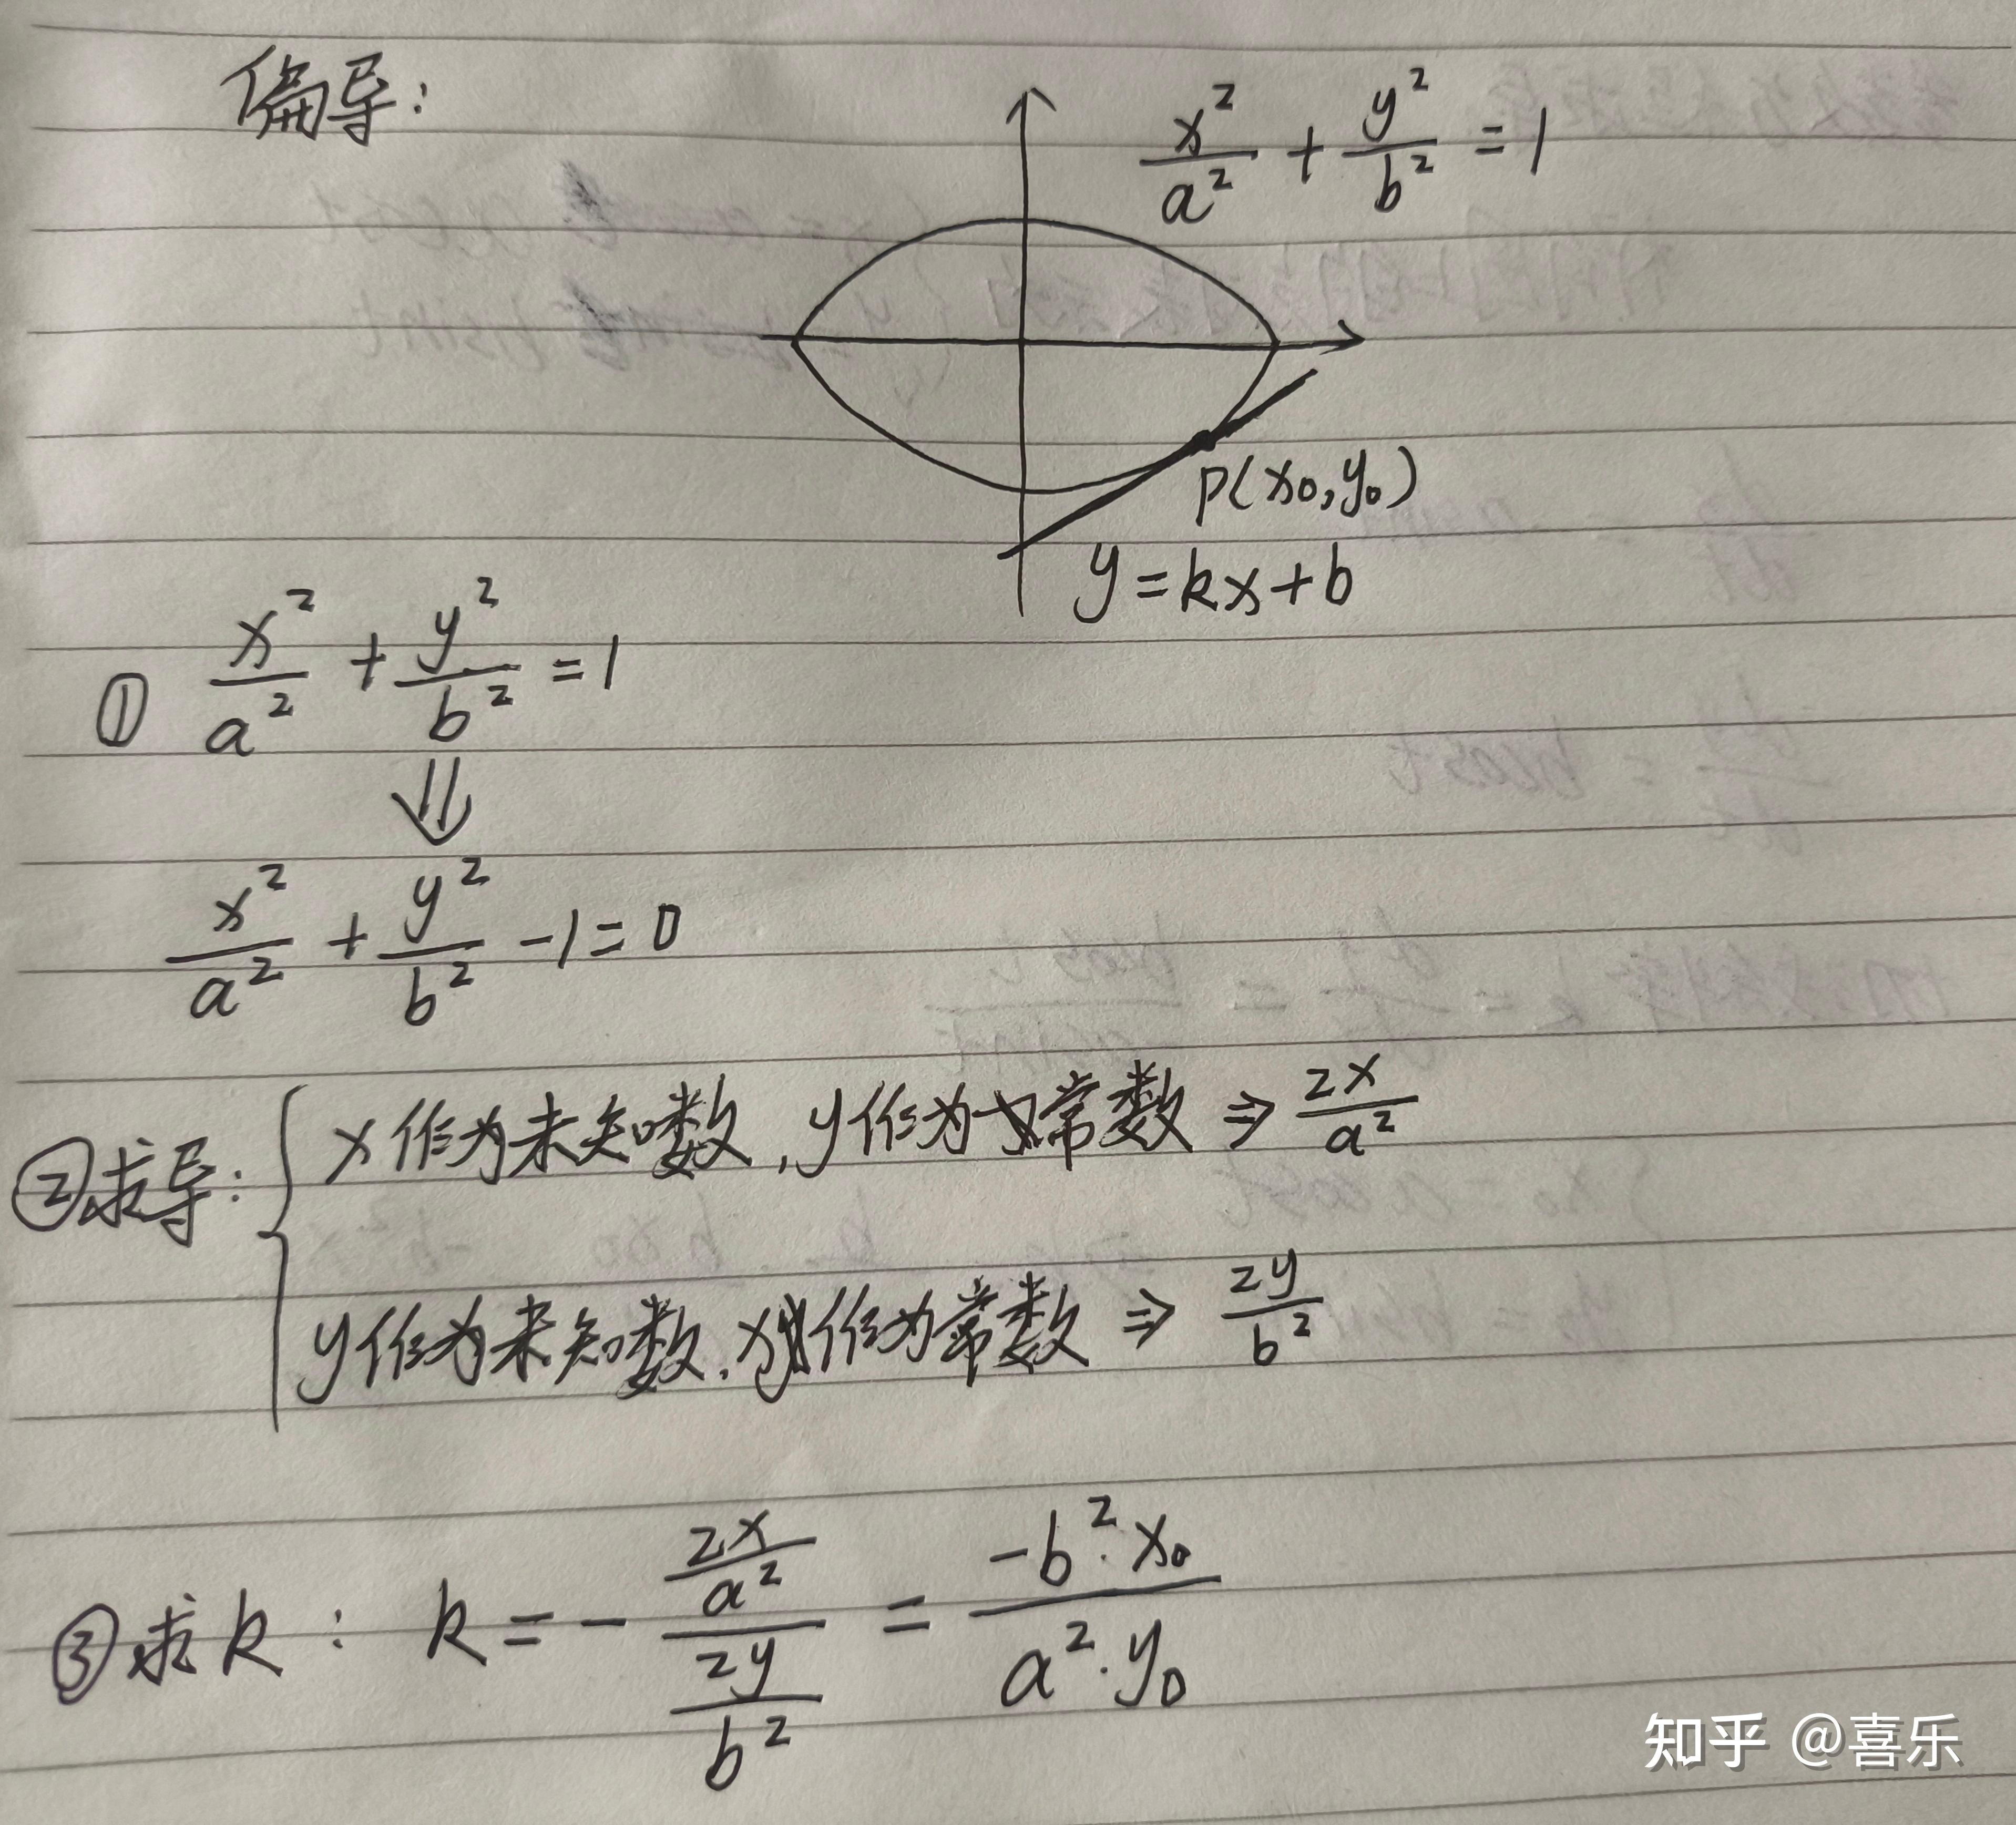 偏导:
x²/a² + y²/b² = 1
P(x₀,y₀)
y=kx+b
① x²/a² + y²/b² = 1
⇓
x²/a² + y²/b² - 1 = 0
②求导:
x作为未知数,y作为常数 ⇒ 2x/a²
y作为未知数,x作为常数 ⇒ 2y/b²
③求k: k = - (2x/a²)/(2y/b²) = (-b²·x₀)/(a²·y₀)
知乎 @喜乐